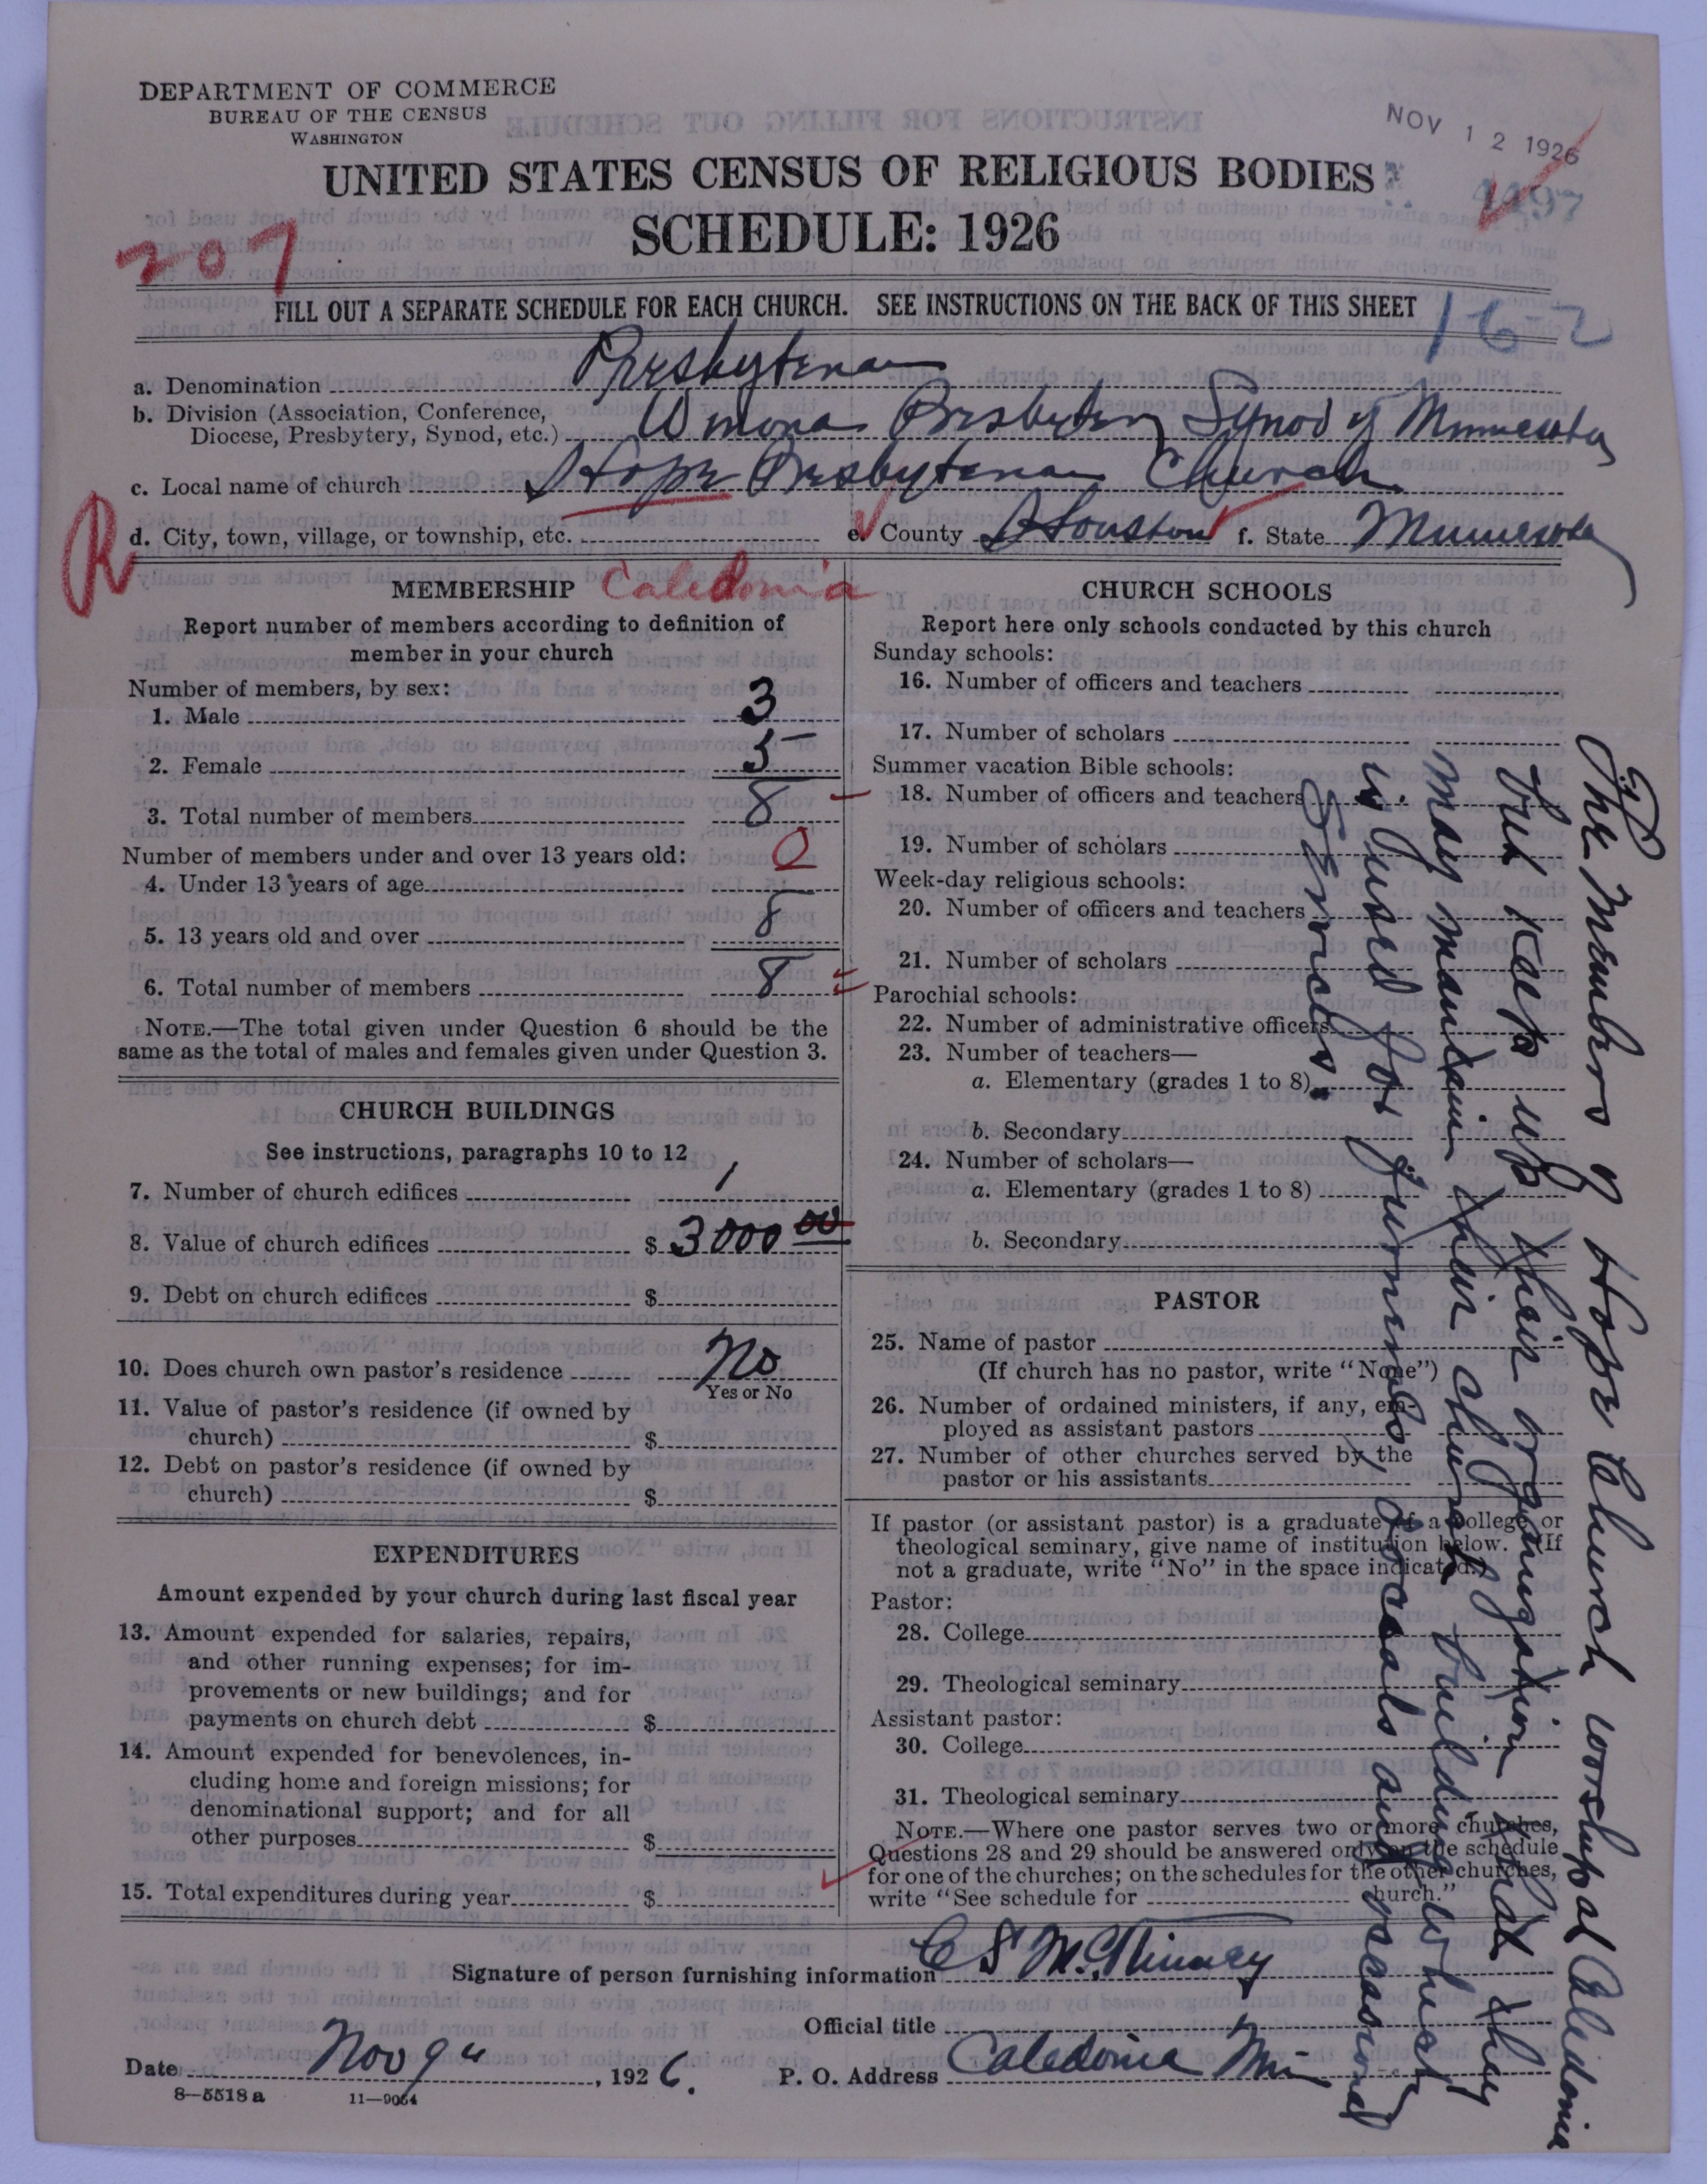 DEPARTMENT OF COMMERCE
BUREAU OF THE CENSUS
WASHINGTON
NOV 12 1926
UNITED STATES CENSUS OF RELIGIOUS BODIES
4497
SCHEDULE: 1926
207
FILL OUT A SEPARATE SCHEDULE FOR EACH CHURCH. SEE INSTRUCTIONS ON THE BACK OF THIS SHEET
16-2
a. Denomination Presbyterian
b. Division (Association, Conference,
Diocese, Presbytery, Synod, etc.) Winona Presbytery Synod of Minnesota
c. Local name of church Hope Presbyterian Church
R
d. City, town, village, or township, etc. e. County Houston f. State Minnesota
Caledonia
MEMBERSHIP
Report number of members according to definition of
member in your church
Number of members, by sex:
1. Male 3
2. Female 5
3. Total number of members 8
Number of members under and over 13 years old:
4. Under 13 years of age 0
5. 13 years old and over 8
6. Total number of members 8
NOTE.—The total given under Question 6 should be the
same as the total of males and females given under Question 3.
CHURCH BUILDINGS
See instructions, paragraphs 10 to 12
7. Number of church edifices 1
8. Value of church edifices $ 3000 00
9. Debt on church edifices $
10. Does church own pastor's residence No
Yes or No
11. Value of pastor's residence (if owned by
church) $
12. Debt on pastor's residence (if owned by
church) $
EXPENDITURES
Amount expended by your church during last fiscal year
13. Amount expended for salaries, repairs,
and other running expenses; for im-
provements or new buildings; and for
payments on church debt $
14. Amount expended for benevolences, in-
cluding home and foreign missions; for
denominational support; and for all
other purposes $
15. Total expenditures during year $
CHURCH SCHOOLS
Report here only schools conducted by this church
Sunday schools:
16. Number of officers and teachers
17. Number of scholars
Summer vacation Bible schools:
18. Number of officers and teachers
19. Number of scholars
Week-day religious schools:
20. Number of officers and teachers
21. Number of scholars
Parochial schools:
22. Number of administrative officers
23. Number of teachers—
a. Elementary (grades 1 to 8)
b. Secondary
24. Number of scholars—
a. Elementary (grades 1 to 8)
b. Secondary
PASTOR
25. Name of pastor
(If church has no pastor, write "None")
26. Number of ordained ministers, if any, em-
ployed as assistant pastors
27. Number of other churches served by the
pastor or his assistants
If pastor (or assistant pastor) is a graduate of a college or
theological seminary, give name of institution below. (If
not a graduate, write "No" in the space indicated.)
Pastor:
28. College
29. Theological seminary
Assistant pastor:
30. College
31. Theological seminary
NOTE.—Where one pastor serves two or more churches,
Questions 28 and 29 should be answered only on the schedule
for one of the churches; on the schedules for the other churches,
write "See schedule for church."
The Members of Hope Church worship at Caledonia
but keep up their organization that they
may maintain their church building which
is used for funerals, socials and occasional
services.
Signature of person furnishing information C S McKinney
Official title
Date Nov 9th, 1926.
P. O. Address Caledonia Min
8—5518 a
11—9054